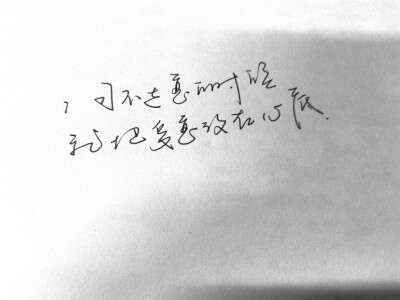 习不走意的时候
就把爱意放在心底.